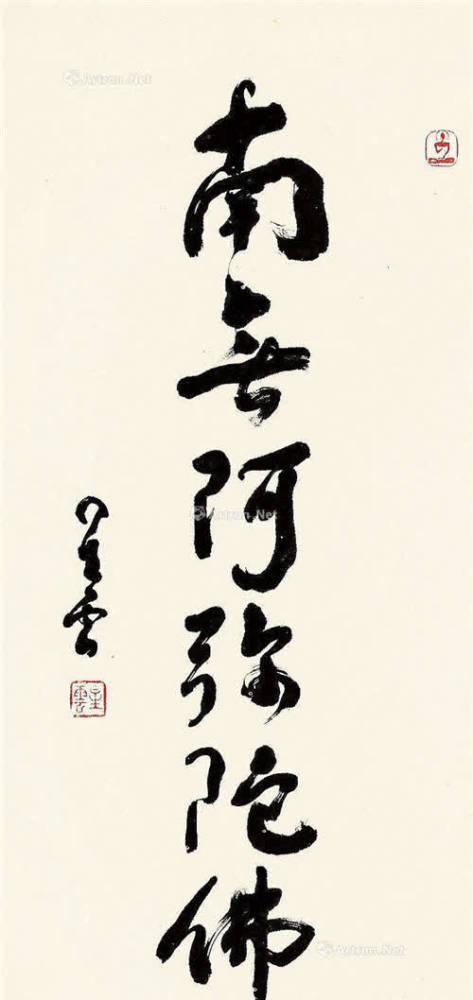 南無阿弥陀佛
星雲
星雲
Artron.Net
Artron.Net
Artron.Net